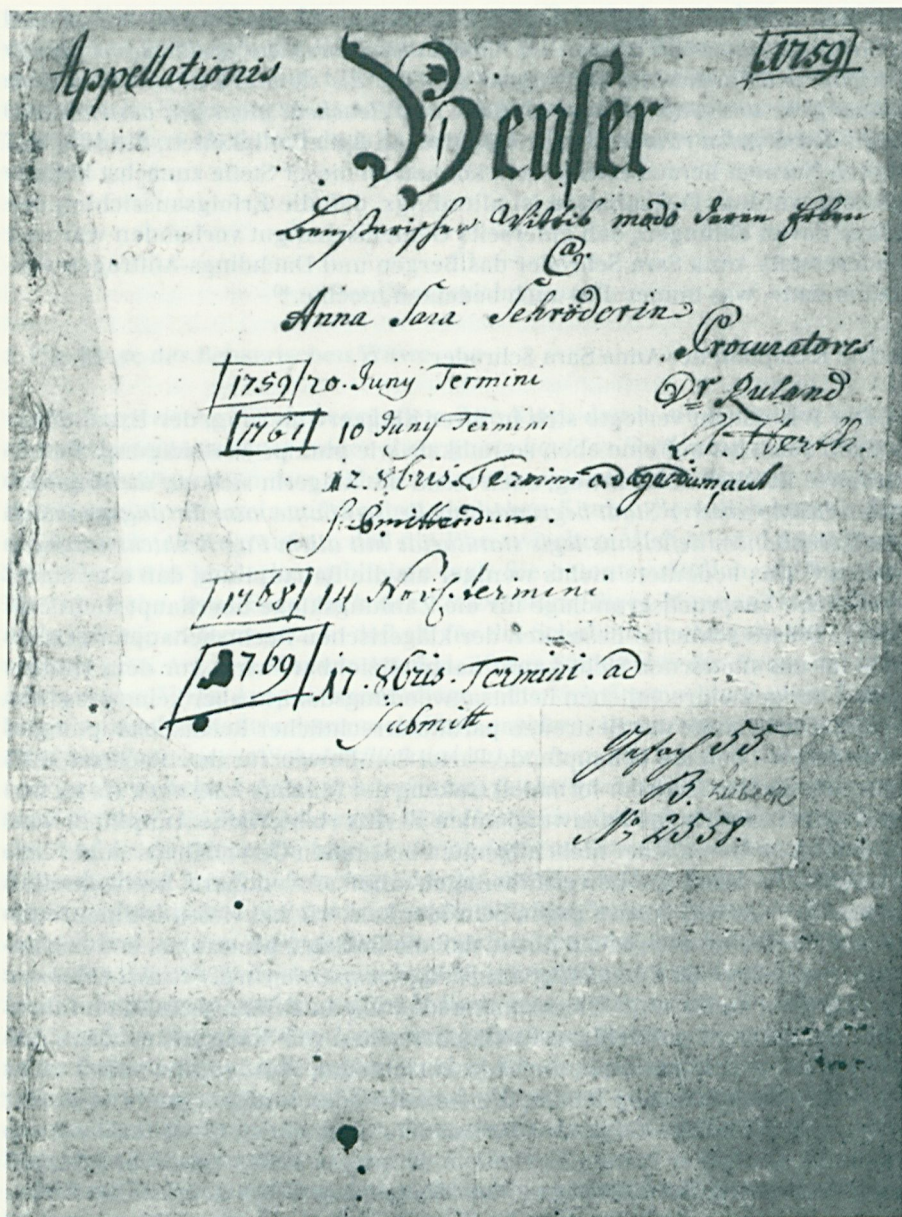 Appellationis
1759
Benser
Benserischer Wittib modò deren Erben
Anna Sara Schröderin
Procuratores
Dr Ruland
1759 20. Juny Termini
1761 10 Juny Termini
L. Herth
12. 8bris Termini ad agendum aut
submittendum.
1768 14 Nov. termini
1769 17. 8bris. Termini. ad
Submitt.
Gefach 55
B. Lübeck
No 2558.